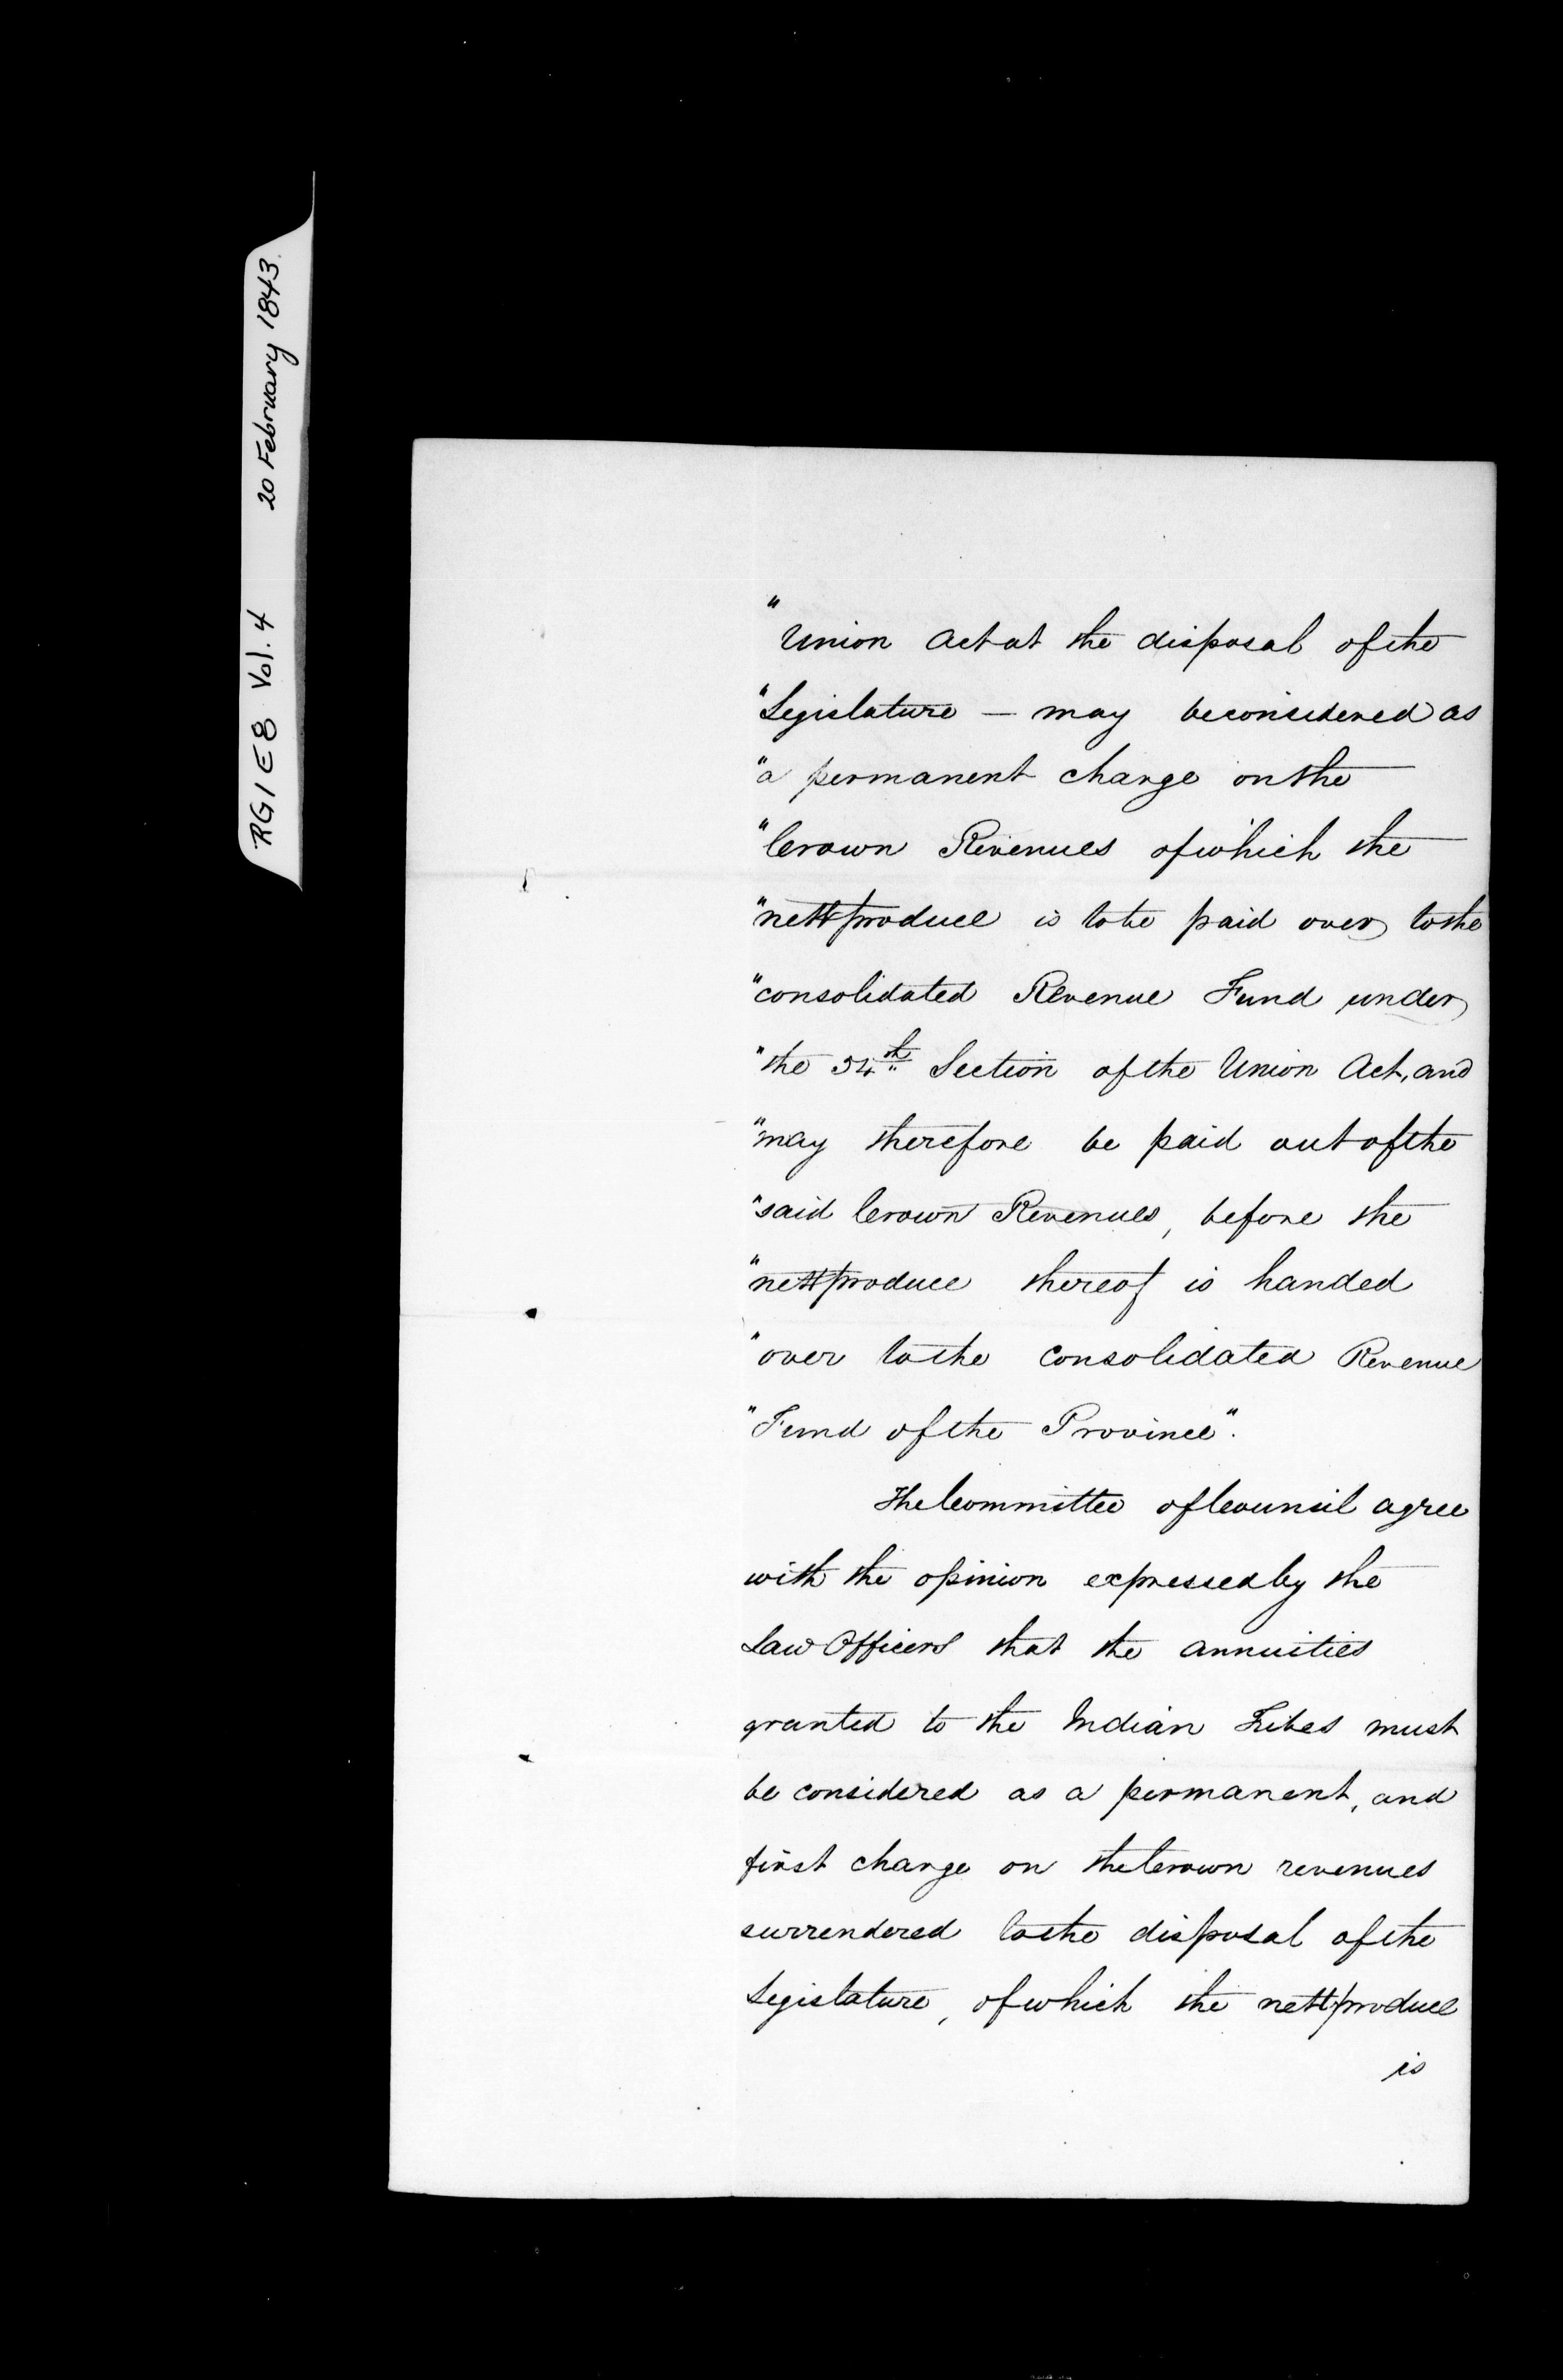 RG1 E8 Vol. 4 20 February 1843.
"Union Act at the disposal of the
"Legislature — may be considered as
"a permanent charge on the
"Crown Revenues of which the
"nett produce is to be paid over to the
"consolidated Revenue Fund under
"the 54th Section of the Union Act, and
"may therefore be paid out of the
"said Crown Revenues, before the
"nett produce thereof is handed
"over to the Consolidated Revenue
"Fund of the Province".
The Committee of Council agree
with the opinion expressed by the
Law Officers that the annuities
granted to the Indian Tribes must
be considered as a permanent, and
first charge on the Crown revenues
surrendered to the disposal of the
Legislature, of which the nett produce
is